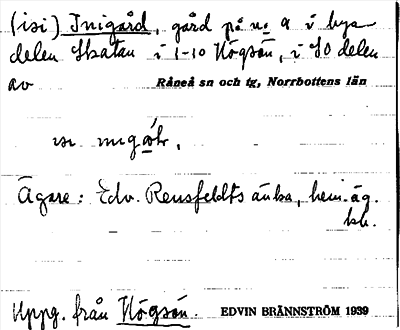 (isi) Inigård, gård på no 9 i bya
delen Skatan i 1-10 Högsön, i SO delen
av Råneå sn och tg, Norrbottens län
Ägare: Edv. Rensfeldts änka, hem.äg.
Uppg. från Högsön. EDVIN BRÄNNSTRÖM 1939